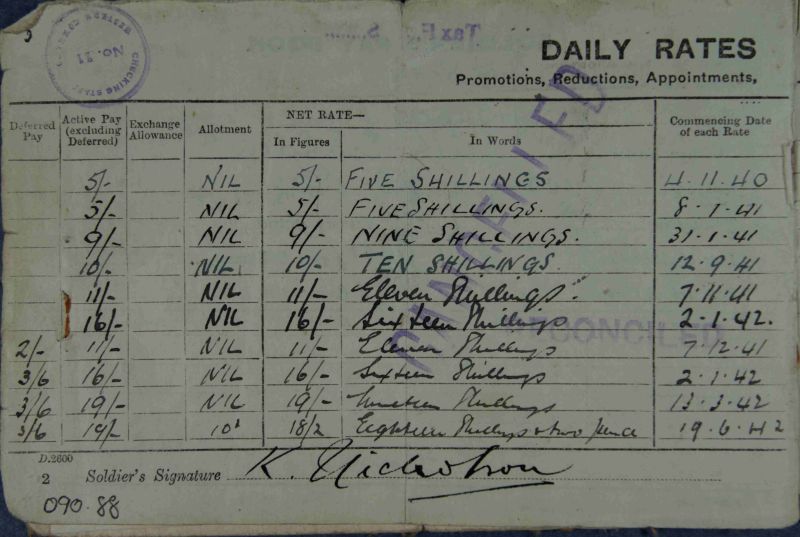 WESTERN COMMAND
CHECKING STAFF
No. 21
DAILY RATES
Promotions, Reductions, Appointments,
Deferred Pay | Active Pay (excluding Deferred) | Exchange Allowance | Allotment | NET RATE— In Figures | In Words | Commencing Date of each Rate
5/- NIL 5/- FIVE SHILLINGS 4.11.40
5/- NIL 5/- FIVE SHILLINGS. 8.1.41
9/- NIL 9/- NINE SHILLINGS. 31.1.41
10/- NIL 10/- TEN SHILLINGS. 12.9.41
11/- NIL 11/- Eleven Shillings. 7.11.41
16/- NIL 16/- Sixteen Shillings 2.1.42.
2/- 11/- NIL 11/- Eleven Shillings 7.12.41
3/6 16/- NIL 16/- Sixteen Shillings 2.1.42
3/6 19/- NIL 19/- Nineteen Shillings 13.3.42
3/6 19/- 10d 18/2 Eighteen Shillings & two pence 19.6.42
CANCELLED
D.2600
2 Soldier's Signature K. Nicholson
090.88